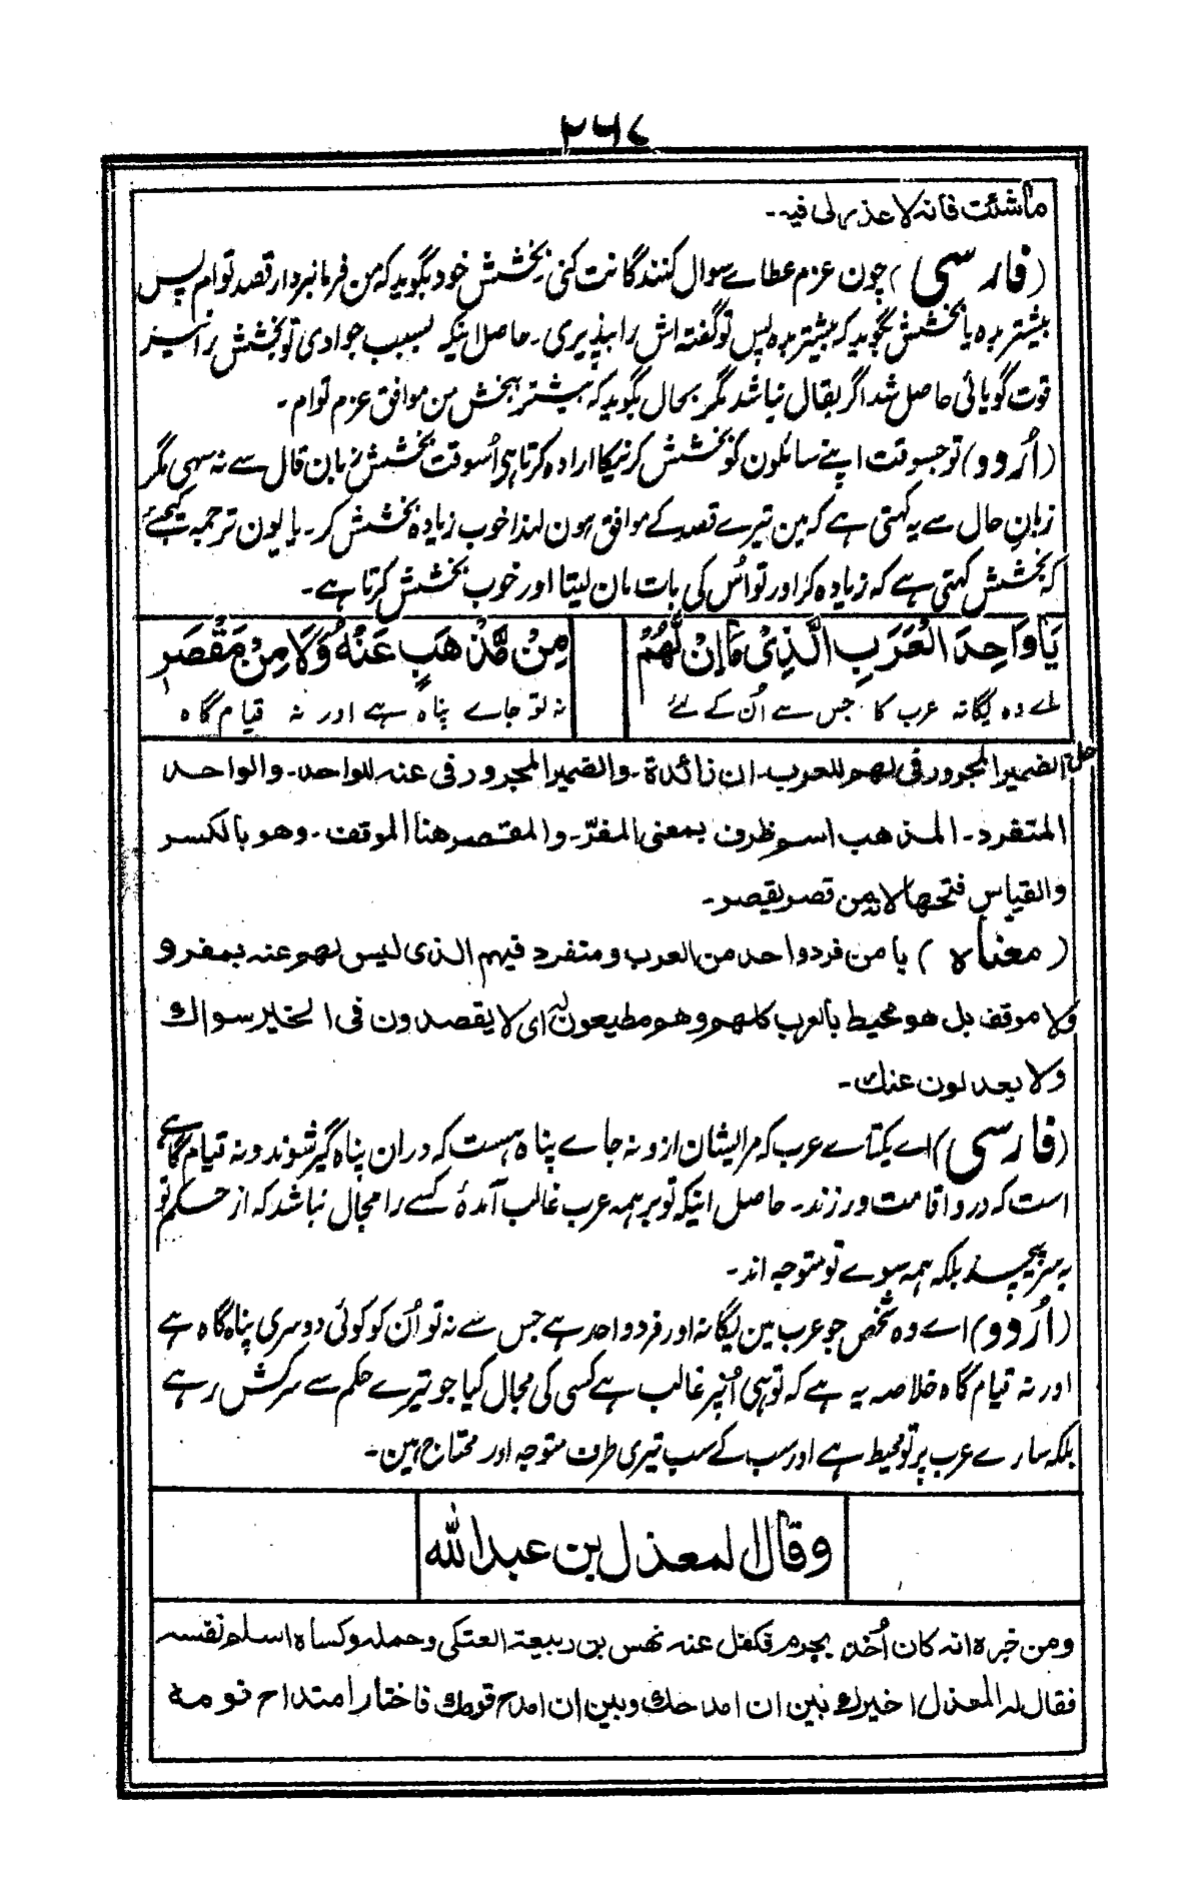 ۲۶۷
ماشئت فانه لا عذر لی فیه۔
(فارسی) چون عزم عطاے سوال کنندگانت کنی بخشش خود بگوید کہ من فرمانبردار قصد توام پس
بیشتر بدہ یا بخشش بگوید کہ بیشتر بدہ پس تو گفتہ اش را بپذیری۔ حاصل اینکہ بسبب جوادی تو بخشش را نیز
قوت گویائی حاصل شد اگر بقال نباشد مگر بحال بگوید کہ بیشتر ببخش من موافق عزم توام۔
(اُردو) تو جسوقت اپنے سائلون کو بخشش کرنیکا ارادہ کرتا ہی اُسوقت بخشش زبان قال سے نہ سہی مگر
زبانِ حال سے یہ کہتی ہے کہ مین تیرے قصد کے موافق ہون لہذا خوب زیادہ بخشش کر۔ یا یون ترجمہ کیجئے
کہ بخشش کہتی ہے کہ زیادہ کر اور تو اُس کی بات مان لیتا اور خوب بخشش کرتا ہے۔
يَا وَاحِدَ الْعَرَبِ الَّذِيْ مَا اِنْ لَّهُمْ مِنْ مَّذْهَبٍ عَنْهُ وَلَا مِنْ مَقْصَرِ
اے وہ یگانہ عرب کا جس سے اُن کے لئے نہ تو جاے پناہ ہے اور نہ قیام گاہ
حل الضمیر المجرور فی لهم للعرب۔ ان زائدة۔ والضمیر المجرور فی عنه للواحد۔ والواحد
المتفرد۔ المذهب اسم ظرف بمعنی المفرّ۔ والمقصر هنا الموقف۔ وهو بالکسر
والقیاس فتحها لانه من قصر یقصر۔
(معناه) یا من فرد واحد من العرب ومتفرد فیهم الذی لیس لهم عنه بمفر و
ولا موقف بل هو محیط بالعرب کلهم وهم مطیعون له ای لا یقصدون فی الخیر سواك
ولا یعدلون عنك۔
(فارسی) اے یکتاے عرب کہ مر ایشان ازو نہ جاے پناہ ہست کہ دران پناہ گیر شوند و نہ قیام گاہے
است کہ درو اقامت ورزند۔ حاصل اینکہ تو بر ہمہ عرب غالب آمدۂ کسے را مجال نباشد کہ از حکم تو
سر پیچد بلکہ ہمہ سوے تو متوجہ اند۔
(اُردو) اے وہ شخص جو عرب مین یگانہ اور فرد واحد ہے جس سے نہ تو اُن کو کوئی دوسری پناہ گاہ ہے
اور نہ قیام گاہ خلاصہ یہ ہے کہ تو ہی اُنپر غالب ہے کسی کی مجال کیا جو تیرے حکم سے سرکش رہے
بلکہ سارے عرب پر تو محیط ہے اور سب کے سب تیری طرف متوجہ اور محتاج ہین۔
وقال المعذل بن عبدالله
ومن خبره انه کان اُخذ بجرم فکفل عنه نهس بن ربیعة العتکی وحمله وکساه اسلم نفسه
فقال له المعذل اخیرك بین ان امدحك وبین ان امدح قومك فاختار امتداح قومه